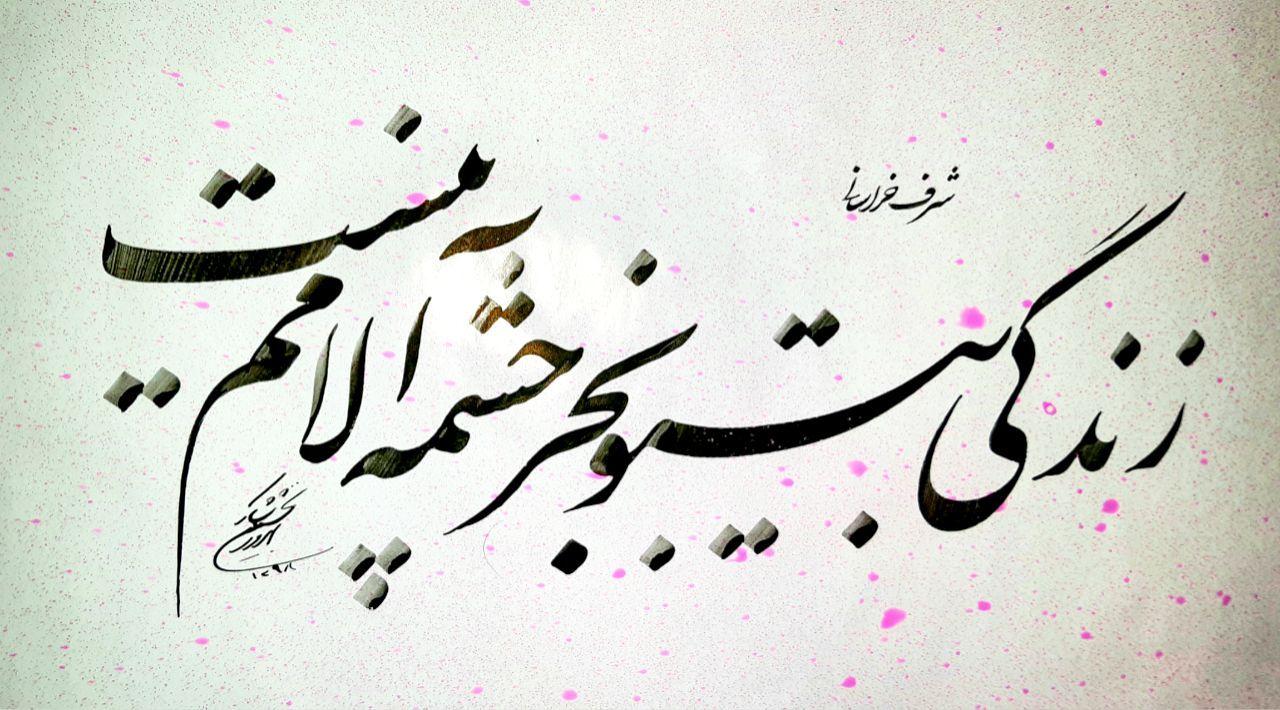 شرف خراسانی
زندگی بیتو بجز چشمه آلامم نیست
۱۳۹۸